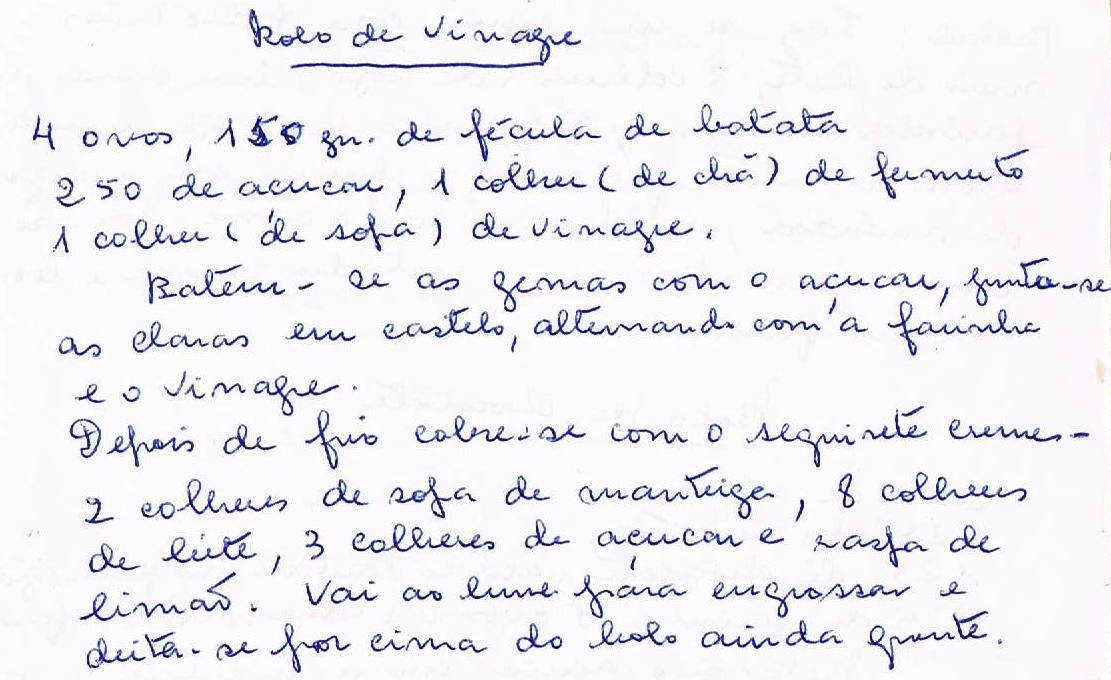 Bolo de Vinagre
4 ovos, 150 gr. de fécula de batata
250 de açucar, 1 colher (de chá) de fermento
1 colher (de sopa) de vinagre.
Batem-se as gemas com o açucar, junta-se
as claras em castelo, alternando com a farinha
e o vinagre.
Depois de frio cobre-se com o seguinte creme-
2 colheres de sopa de manteiga, 8 colheres
de leite, 3 colheres de açucar e raspa de
limão. Vai ao lume para engrossar e
deita-se por cima do bolo ainda quente.